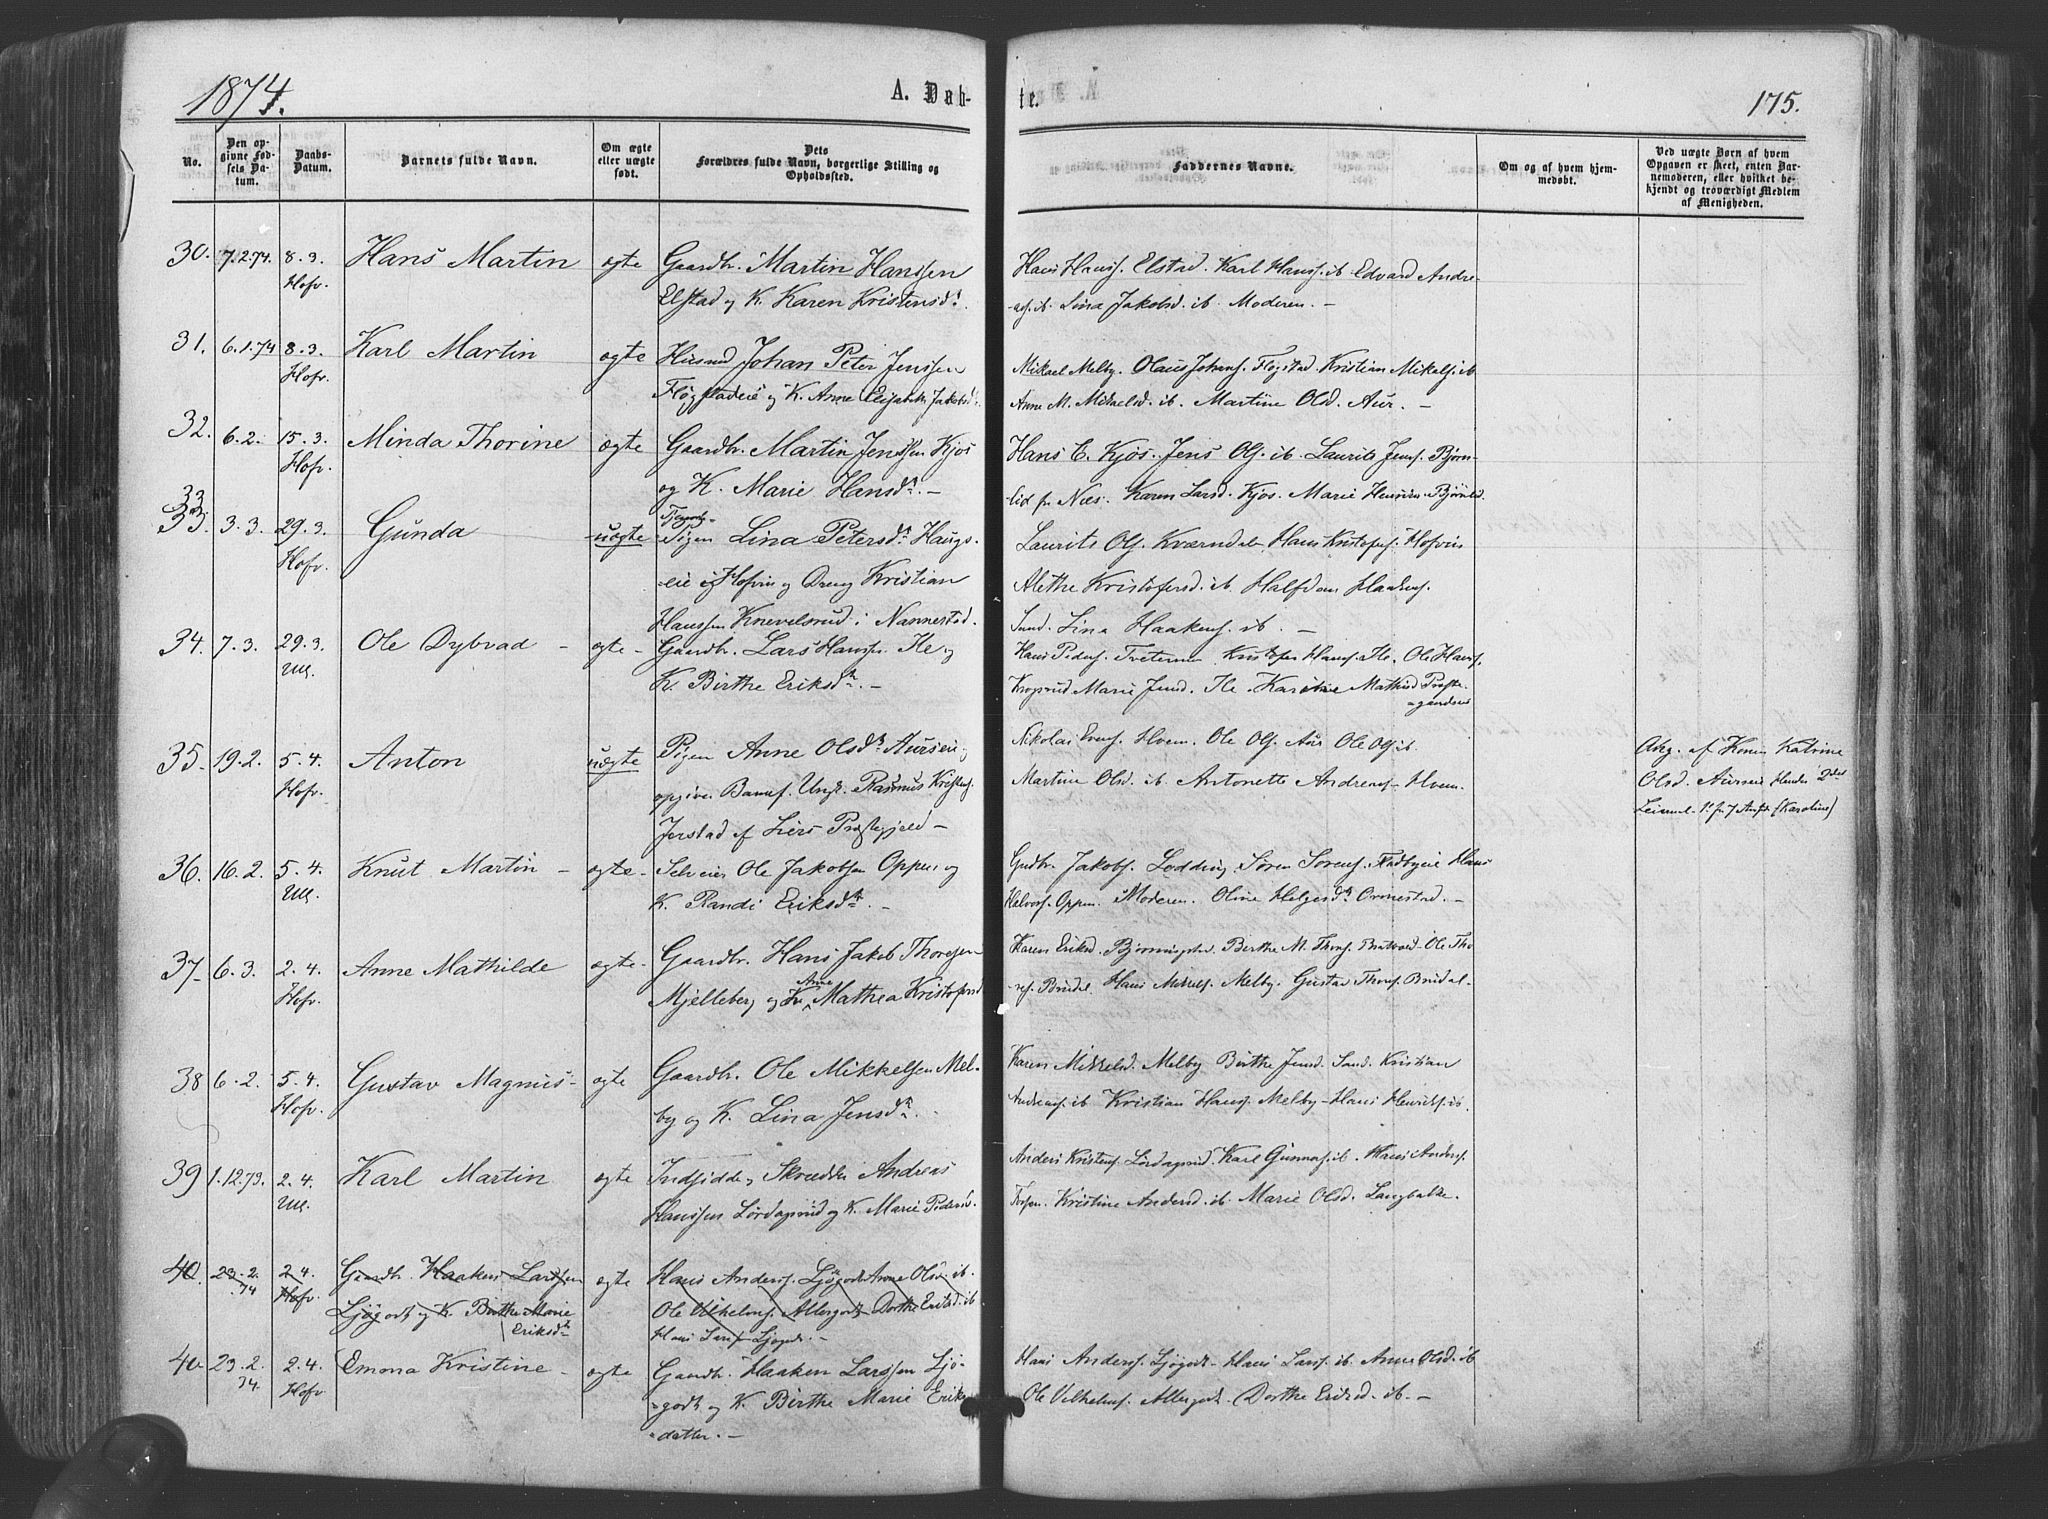 1874.
A. Døb-
te.
175.
No.
Den op-
givne Fød-
sels Da-
tum.
Daabs-
Datum.
Barnets fulde Navn.
Om ægte
eller uægte
født.
Dets
Forældres fulde Navn, borgerlige Stilling og
Opholdssted.
Faddernes Navne.
Om og af hvem hjem-
medøbt.
Ved uægte Børn af hvem
Opgaven er skeet, enten Bar-
nemoderen, eller hvilket be-
kjendt og troværdigt Medlem
af Menigheden.
30. 7.2.74. 8.3. Hans Martin ægte Gaardbr. Martin Hanssen
Hofv. Elstad og K. Karen Kristensdr.
Hans Hanss. Elstad. Karl Hanss. ib Edvard Andre-
ass. ib. Lina Jakobsd. ib. Moderen. —
31. 6.1.74 8.3. Karl Martin ægte Husmd Johan Peter Jenssen
Hofv. Fløgstadeie og K. Anne Elisabeth Jakobsd.
Mikael Melby. Olaus Johans. Flogstad. Kristian Mikels. ib
Anne M. Mikaelsd. ib. Martine Olsd. Aur. —
32. 6.2. 15.3. Minda Thorine ægte Gaardbr. Martin Jenssen Kjos
Hofv. og K. Marie Hansdr. —
Hans E. Kjos. Jens Ols. ib. Laurits Jenss. Bjørn-
lid fr. Næs. Karen Larsd. Kjos. Marie Hansen Bjørnld.
33
33. 3.3. 29.3. Gunda uægte Pigen Lina Petersdr. Haugs-
Hofv. eie i Hofvin og Dreng Kristian
Hanssen Knevelsrud i Nannestad.
Laurits Ols. Kværndalen, Hans Kristofers. Hofvin
Alethe Kristofersd. ib. Halfdan Haakens.
Sand. Lina Haakens. ib. —
34. 7.3. 29.3 Ole Dybvad — ægte — Gaardbr. Lars Hanss. Ile og
Ull. K. Birthe Eriksdr. —
Hans Peders. Tveterau Kristofer Hanss. Ile. Ole Hanss.
Krogsrud Marie Jensd. Ile. Karoline Mathisd Præste-
gaardseie
35. 19.2. 5.4. Anton uægte Pigen Anne Olsdr. Aurseie,
Hofv. opgiver Barnef. Ungk. Rasmus Kristens.
Jerstad af Liers Præstegjeld —
Nikolai Evens. Hvem. Ole Ols. Aur Ole Ols. ib.
Martine Olsd. ib Antonette Andreass. Hvem.
Ang. af Konen Katrine
Olsd. Aurseie Hendes 2det
Leierml. 1t fr. 7 Aar sd. (Karoline)
36. 16.2. 5.4. Knut Martin — ægte — Selveier Ole Jakobsen Oppen og
Ull. K. Randi Eriksdr. —
Gudbr. Jakobs. Lødding. Søren Sørens. Fladbyeie Hans
Halvors. Oppen. Moderen. Oline Helgesdr. Ormestad. —
37 — 6.3. 2.4. Anne Mathilde ægte — Gaardbr. Hans Jakob Thoresen
Hofv. Mjelleberg og K. Anne Mathea Kristofersd
Karen Eriksd. Bjørningstad. Berthe M. Thors. Bratvold. Ole Tho
res. Brudal. Hans Mikkels. Melby. Gustav Thors. Brudal —
38 6.2. 5.4. Gustav Magnus — ægte Gaardbr. Ole Mikkelsen Mel-
Hofv. by og K. Lina Jensdr.
Karen Mikkelsd. Melby Birthe Jensd. Sand. Kristian
Andreass. ib Kristian Hanss. Melby — Hans Henriks. ib.
39 1.12.73. 2.4. Karl Martin ægte Indsidder, Skrædder Andreas
Ull. Hanssen Lørdagsrud og K. Marie Pedersd.
Anders Kristens. Lørdagsrud. Karl Gunnars. ib. Hans Anders.
Kristine Andersd. ib. Marie Olsd. Langbakke.
40. 23.2. 74 2.4. Hofv. Gaardbr. Haaken Larssen ægte Hans Anders. Ljøgodt Anne Olsd. ib.
Ljøgodt og K. Birthe Marie Ole Vilhelms. Allergodt Dorthe Eriksd. ib
Eriksdr. Hans Larss. Ljøgodt. —
40 23.2. 74. 2.4. Emma Kristine — ægte Gaardbr. Haaken Larssen Ljø-
Hofv godt og K. Birthe Marie Eriks
datter. —
Hans Anders. Ljøgodt — Hans Larss. ib. Anne Olsd. ib
Ole Vilhelms. Allergodt. Dorthe Eriksd. ib. —